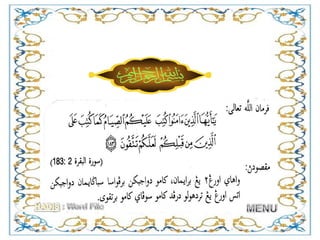 بسم الله الرحمن الرحيم
فرمان الله تعالى:
يَٰٓأَيُّهَا ٱلَّذِينَ ءَامَنُوا۟ كُتِبَ عَلَيْكُمُ ٱلصِّيَامُ كَمَا كُتِبَ عَلَى
ٱلَّذِينَ مِن قَبْلِكُمْ لَعَلَّكُمْ تَتَّقُونَ ﴿١٨٣﴾
(سورة البقرة 2 :183)
مقصودڽ:
واهاي اورڠ٢ يڠ برايمان، كامو دواجبكن برڤواسا سباݢايمان دواجبكن
اتس اورڠ يڠ تردهولو درڤد كامو سوڤاي كامو برتقوى.
: Word File
MENU